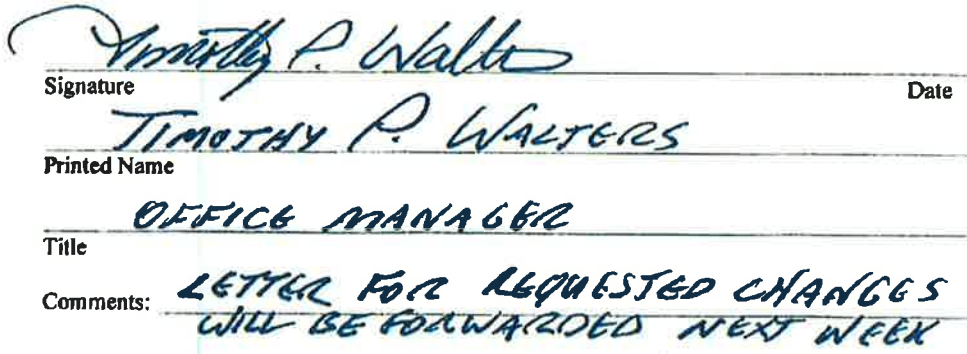 Timothy P. Walters
Signature Date
TIMOTHY P. WALTERS
Printed Name
OFFICE MANAGER
Title
Comments: LETTER FOR REQUESTED CHANGES
WILL BE FORWARDED NEXT WEEK